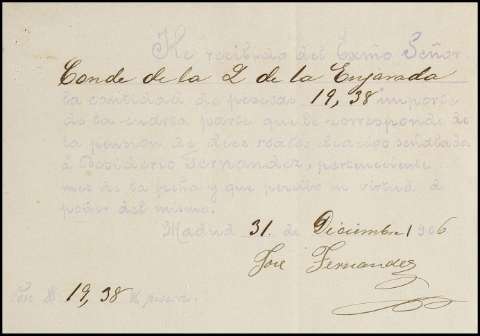 He recibido del Exmo Señor
Conde de la T. de la Enjarada
la cantidad de pesetas 19,38 importe
de la cuarta parte que le corresponde de
la pension de diez reales diarios señalada
á Desiderio Fernandez, perteneciente
mes de la fecha y que percibo en virtud de
poder del mismo.
Madrid 31 de Diciembre 1906
José Fernandez
Son 19,38 pesetas.